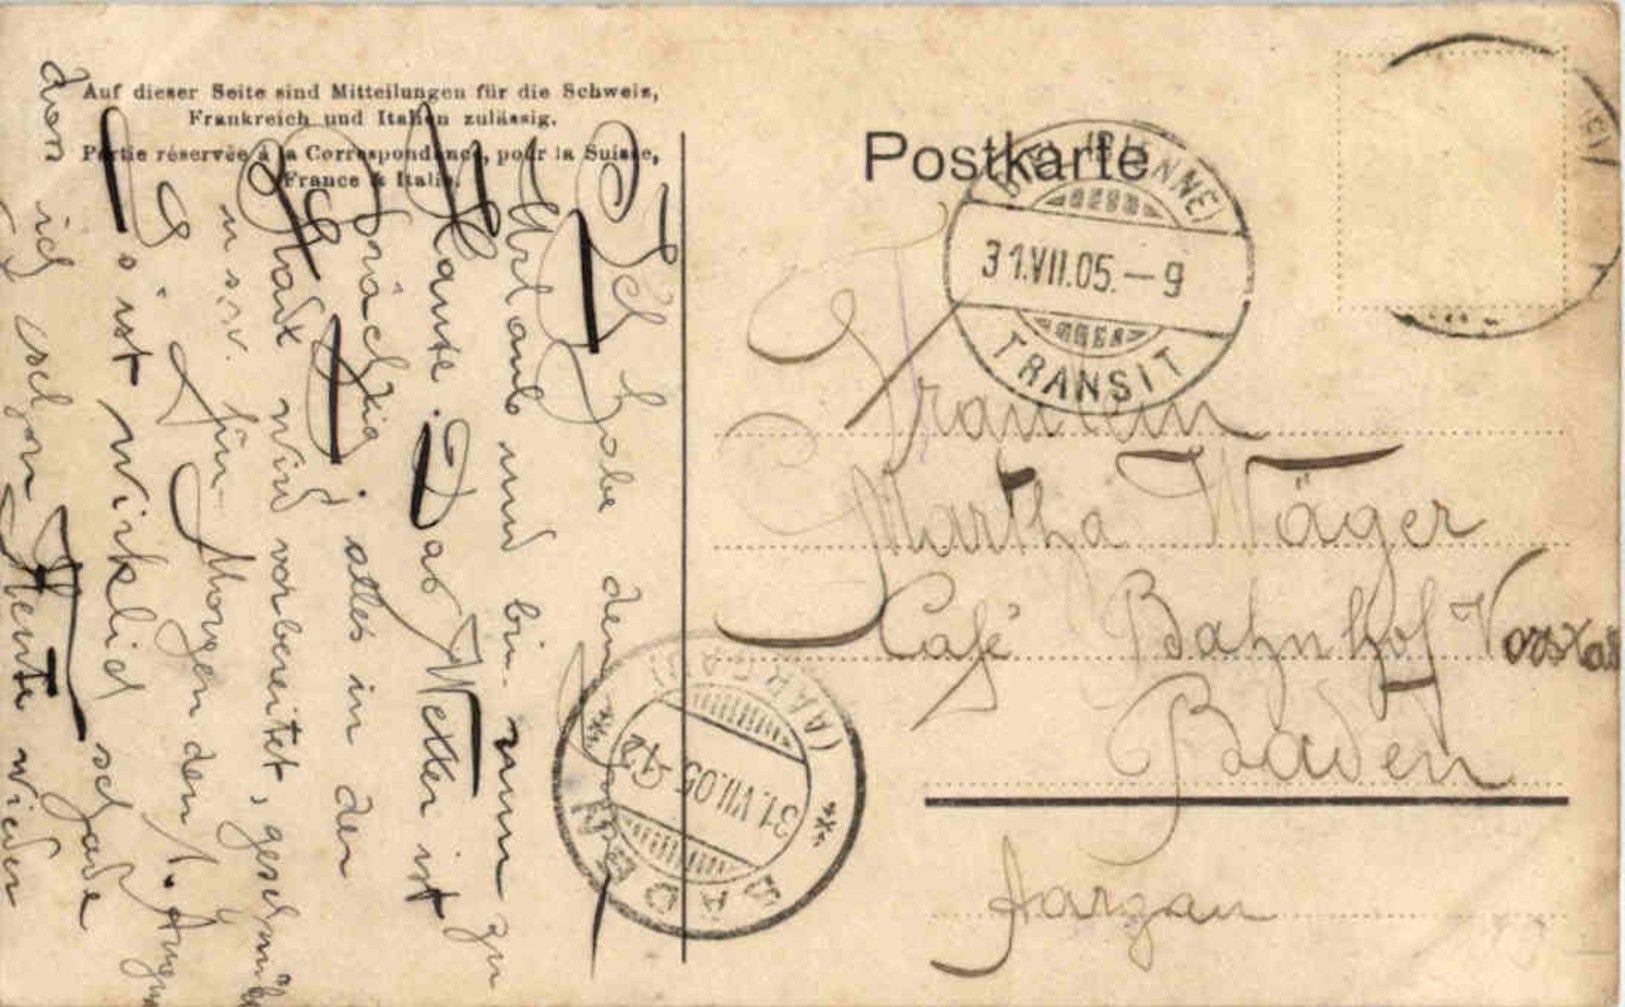 Auf dieser Seite sind Mitteilungen für die Schweiz,
Frankreich und Italien zulässig.
Partie réservée à la Correspondance, pour la Suisse,
France & Italie.
Postkarte
(BIENNE)
31.VII.05.–9
TRANSIT
Fräulein
Martha Wäger
Café Bahnhof
Baden
Aargau
BADEN
(AARGAU)
31.VII.05
Ich habe den
Urlaub und bin nun zu
Hause. Das Wetter ist
prächtig, alles in der
Stadt wird vorbereitet, geschmü
u.s.w. für Morgen den 1. Augu
Es ist wirklich schade
ich schon Heute wieder